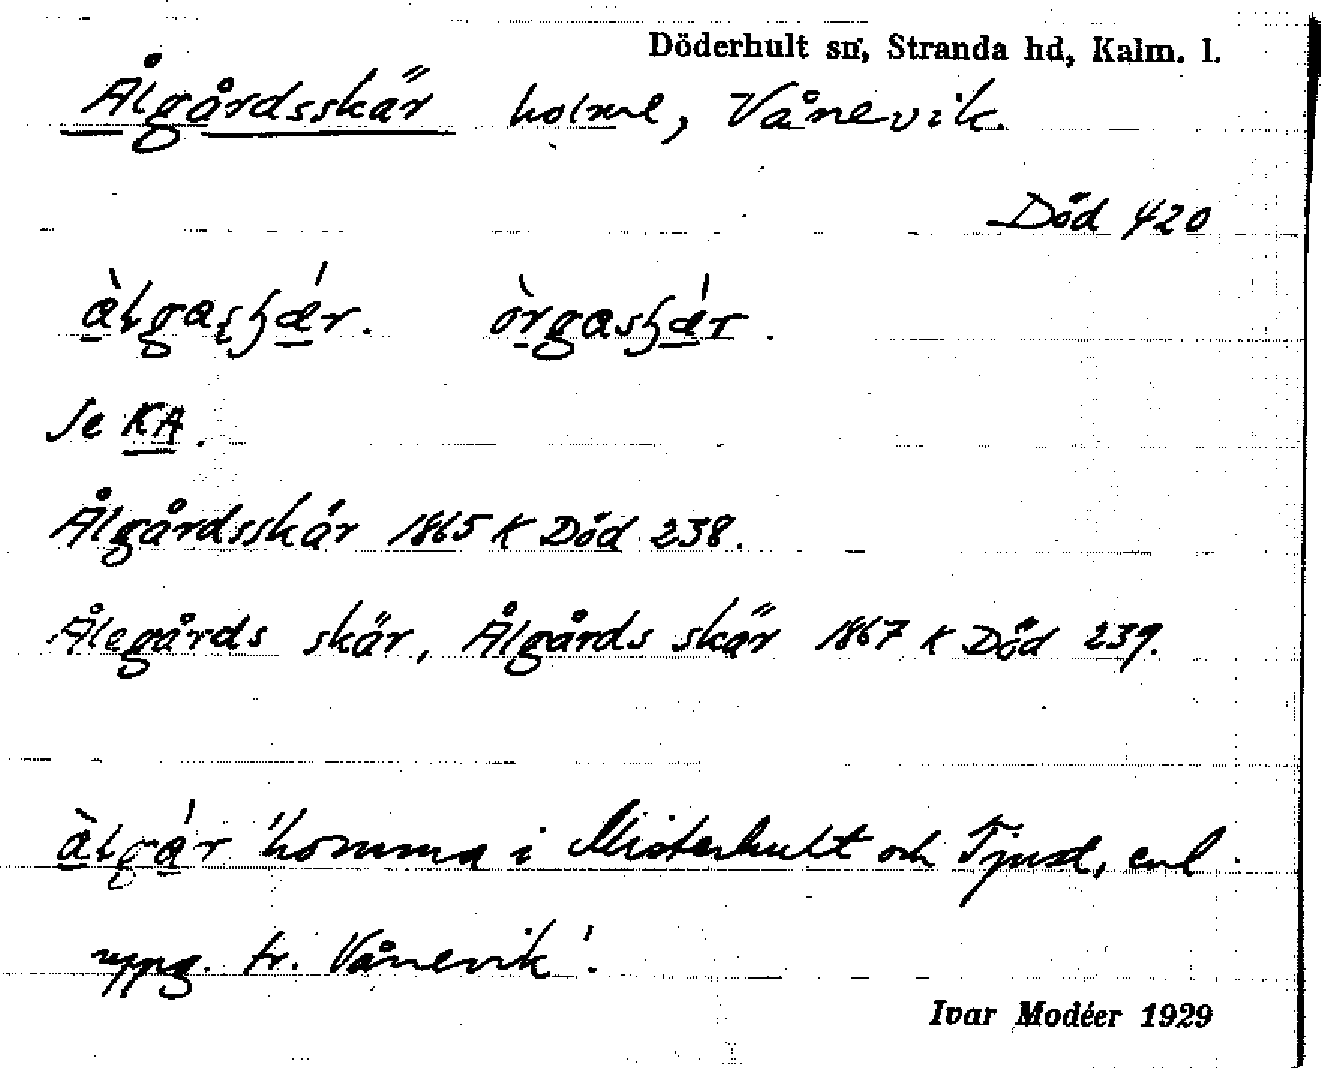 Döderhult sn, Stranda hd, Kalm. l.
Ålgårdsskär holme, Vånevik.
Död 420
Se KA.
Ålgårdsskär 1865 K Död 238.
Ålegårds skär, Ålgårds skär 1867 K Död 239.
'komma i Misterhult och Tjust, enl.
uppg. fr. Vånevik'.
Ivar Modéer 1929